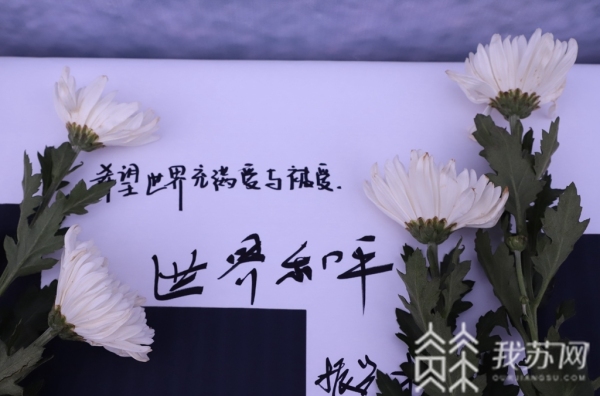 希望世界充满爱与被爱.
世界和平
振兴
我苏网
OURJIANGSU.COM